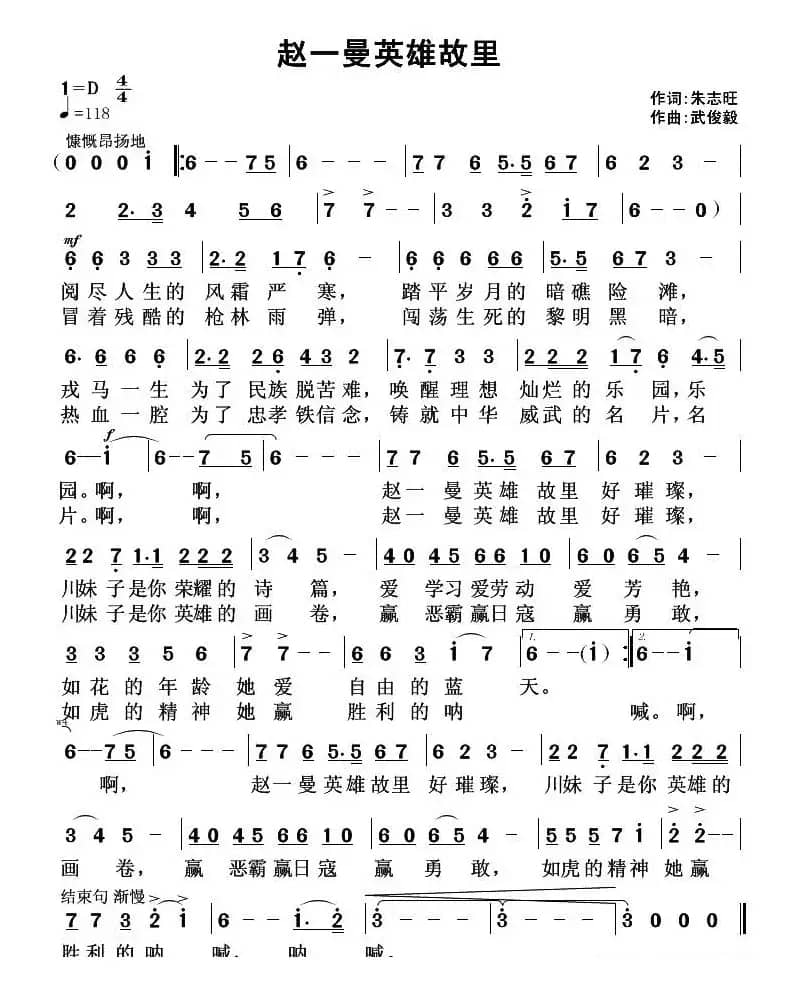 赵一曼英雄故里
1=D 4/4
♩=118
作词:朱志旺
作曲:武俊毅
慷慨昂扬地
(0 0 0 i |: 6 - - 7 5 | 6 - - - | 7 7 6 5· 5 6 7 | 6 2 3 - |
2 2· 3 4 5 6 | 7 7 - - | 3 3 2 i 7 | 6 - - 0) |
mf
6 6 3 3 3 3 | 2· 2 1 7 6 - | 6 6 6 6 6 6 | 5· 5 6 7 6 - |
阅尽人生的 风霜 严 寒, 踏平岁月的 暗礁 险 滩,
冒着残酷的 枪林 雨 弹, 闯荡生死的 黎明 黑 暗,
6· 6 6 6 | 2· 2 2 6 4 3 2 | 7· 3 7 7 | 2 2 2 1 7 6 4· 5 |
戎马一生 为了 民族 脱苦难, 唤醒理想 灿烂的 乐 园,乐
热血一腔 为了 忠孝 铁信念, 铸就中华 威武的 名 片,名
f
6 - i | 6 - - 7 5 | 6 - - - | 7 7 6 5· 5 6 7 | 6 2 3 - |
园。啊, 啊, 赵一曼英雄 故里 好 璀璨,
片。啊, 啊, 赵一曼英雄 故里 好 璀璨,
2 2 7 1· 1 2 2 2 | 3 4 5 - | 4 0 4 5 6 6 1 0 | 6 0 6 5 4 - |
川妹 子是你 荣耀的 诗 篇, 爱 学习 爱劳动 爱 芳 艳,
川妹 子是你 英雄的 画 卷, 赢 恶霸 赢日寇 赢 勇 敢,
3 3 3 5 6 | 7 7 - - | 6 6 3 i 7 | 1. 6 - - (i) :| 2. 6 - - |
如花 的 年 龄 她 爱 自由 的 蓝 天。
如虎 的 精 神 她 赢 胜利 的 呐 喊。啊,
6 - - 7 5 | 6 - - - | 7 7 6 5· 5 6 7 | 6 2 3 - | 2 2 7 1· 1 2 2 2 |
啊, 赵一曼英雄故里 好 璀璨, 川妹 子是你 英雄的
3 4 5 - | 4 0 4 5 6 6 1 0 | 6 0 6 5 4 - | 5 5 5 5 7 i | 2 2 - - |
画 卷, 赢 恶霸赢日寇 赢 勇 敢, 如虎的精神 她 赢
结束句 渐慢
7 7 3 2 i | 6 - - i· 2 | 3 - - - | 3 - - - | 3 0 0 0 ‖
胜利的呐 喊, 呐 喊。